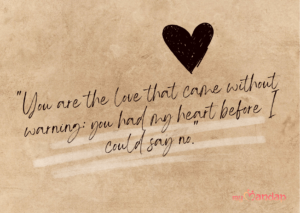 "You are the love that came without
warning; you had my heart before I
could say no."